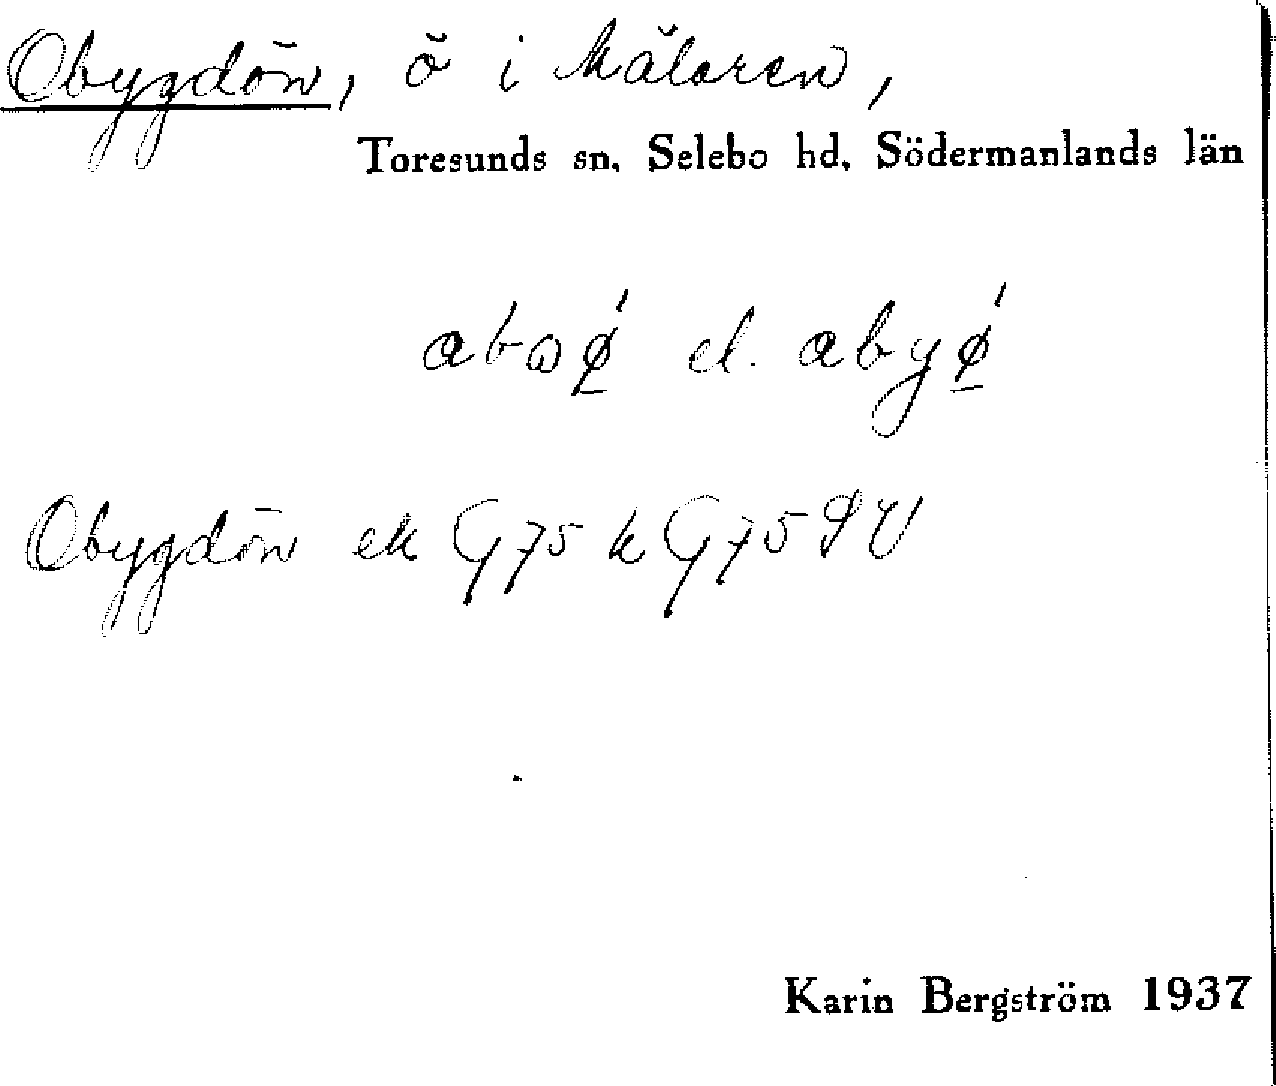 Obygdön, ö i Mälaren,
Toresunds sn. Selebo hd. Södermanlands län
el. abyǿ̲
Obygdön ek G75 k G75 SV
Karin Bergström 1937